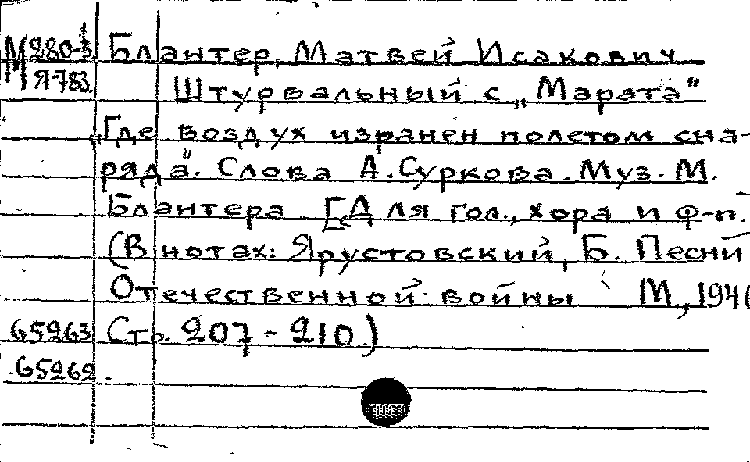 М 280-3 Блантер, Матвей Исакович
Я-783 Штурвальный с „Марата"
„Где воздух изранен полетом сна-
ряда". Слова А. Суркова. Муз. М.
Блантера. [Для гол., хора и ф-п.
(В нотах: Ярустовский, Б. Песни
Отечественной войны М., 1946
65263 Стр. 207-210)
65262.